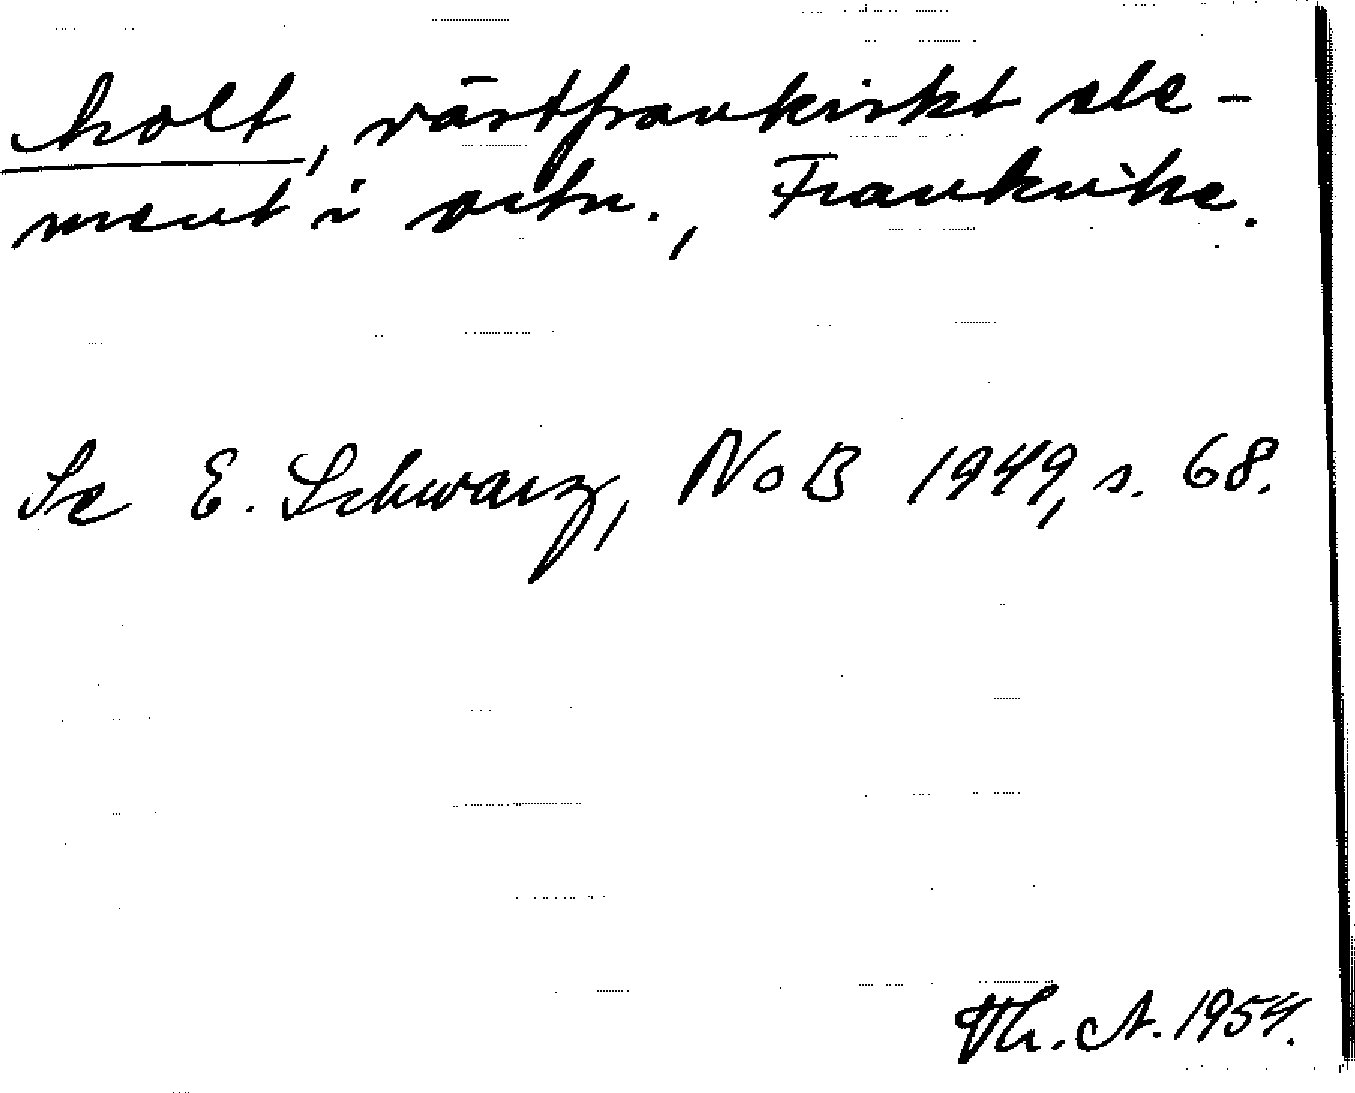 holt, västfrankiskt ele-
ment i ortn., Frankrike.
Se E. Schwarz, NoB 1949, s. 68.
Th. A. 1954.